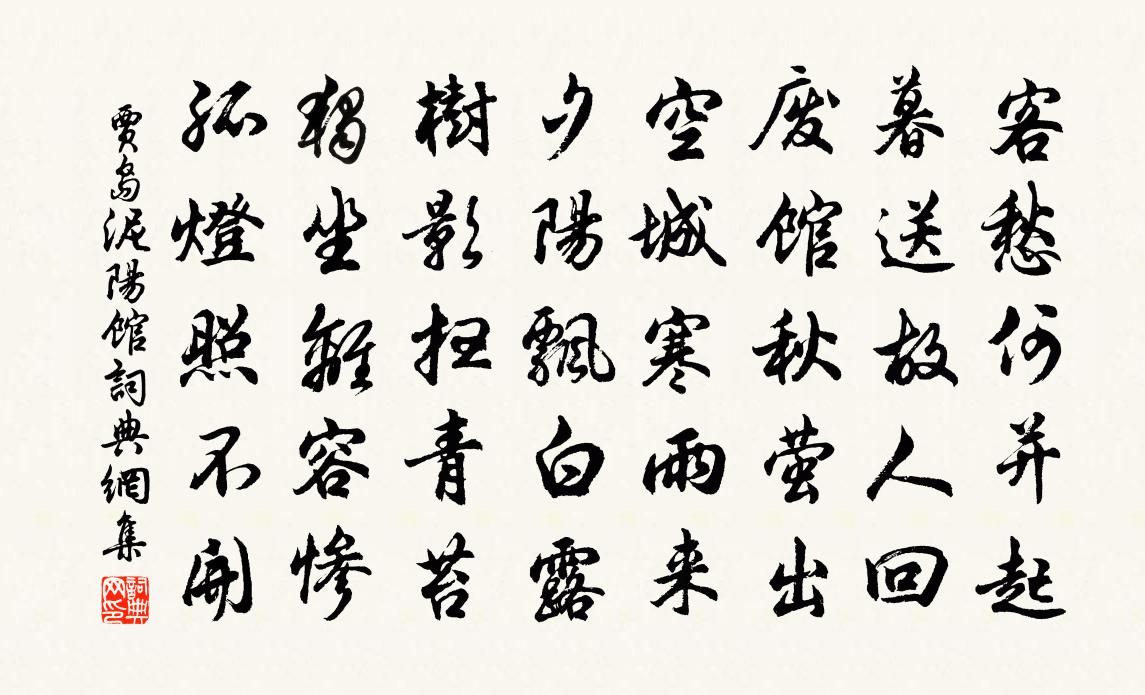 客愁何并起
暮送故人回
废馆秋萤出
空城寒雨来
夕陽飄白露
樹影扫青苔
獨坐離容惨
孤燈照不開
賈島泥陽馆詞典網集
詞典
网印